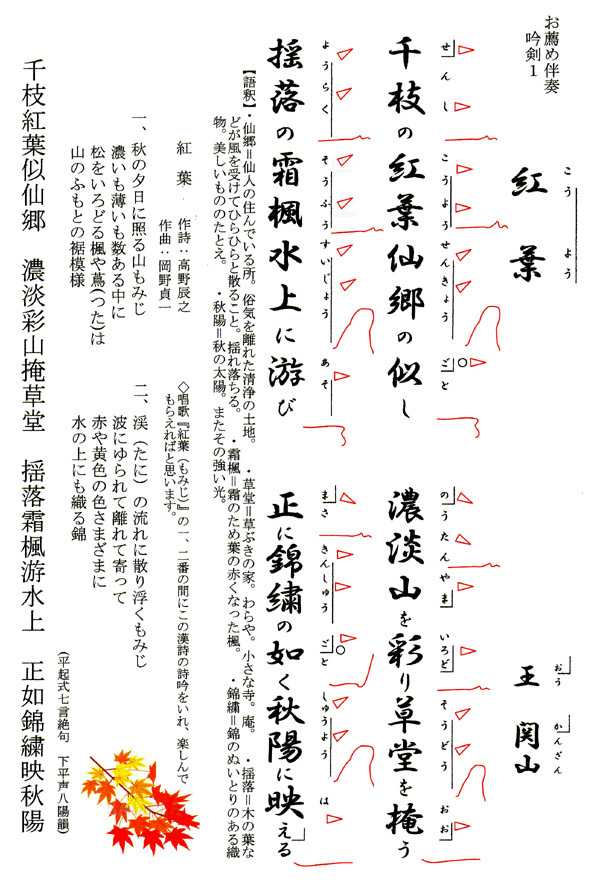 お薦め伴奏
吟剣１
紅葉
こうよう
王関山
おうかんざん
千枝の紅葉仙郷の似し
せんしこうようせんきょうごと
濃淡山を彩り草堂を掩う
のうたんやまいろどそうどうおお
揺落の霜楓水上に游び
ようらくそうふうすいじょうあそ
正に錦繍の如く秋陽に映える
まさきんしゅうごとしゅうようは
【語釈】・仙郷＝仙人の住んでいる所。俗気を離れた清浄の土地。・草堂＝草ぶきの家。わらや。小さな寺。庵。・揺落＝木の葉な
どが風を受けてひらひらと散ること。揺れ落ちる。・霜楓＝霜のため葉の赤くなった楓。・錦繍＝錦のぬいとりのある織
物。美しいもののたとえ。・秋陽＝秋の太陽。またその強い光。
紅葉　作詩：高野辰之
作曲：岡野貞一
◇唱歌『紅葉（もみじ）』の一、二番の間にこの漢詩の詩吟をいれ、楽しんで
もらえればと思います。
一、秋の夕日に照る山もみじ
濃いも薄いも数ある中に
松をいろどる楓や蔦(つた)は
山のふもとの裾模様
二、渓（たに）の流れに散り浮くもみじ
波にゆられて離れて寄って
赤や黄色の色さまざまに
水の上にも織る錦
（平起式七言絶句　下平声八陽韻）
千枝紅葉似仙郷　濃淡彩山掩草堂　揺落霜楓游水上　正如錦繍映秋陽